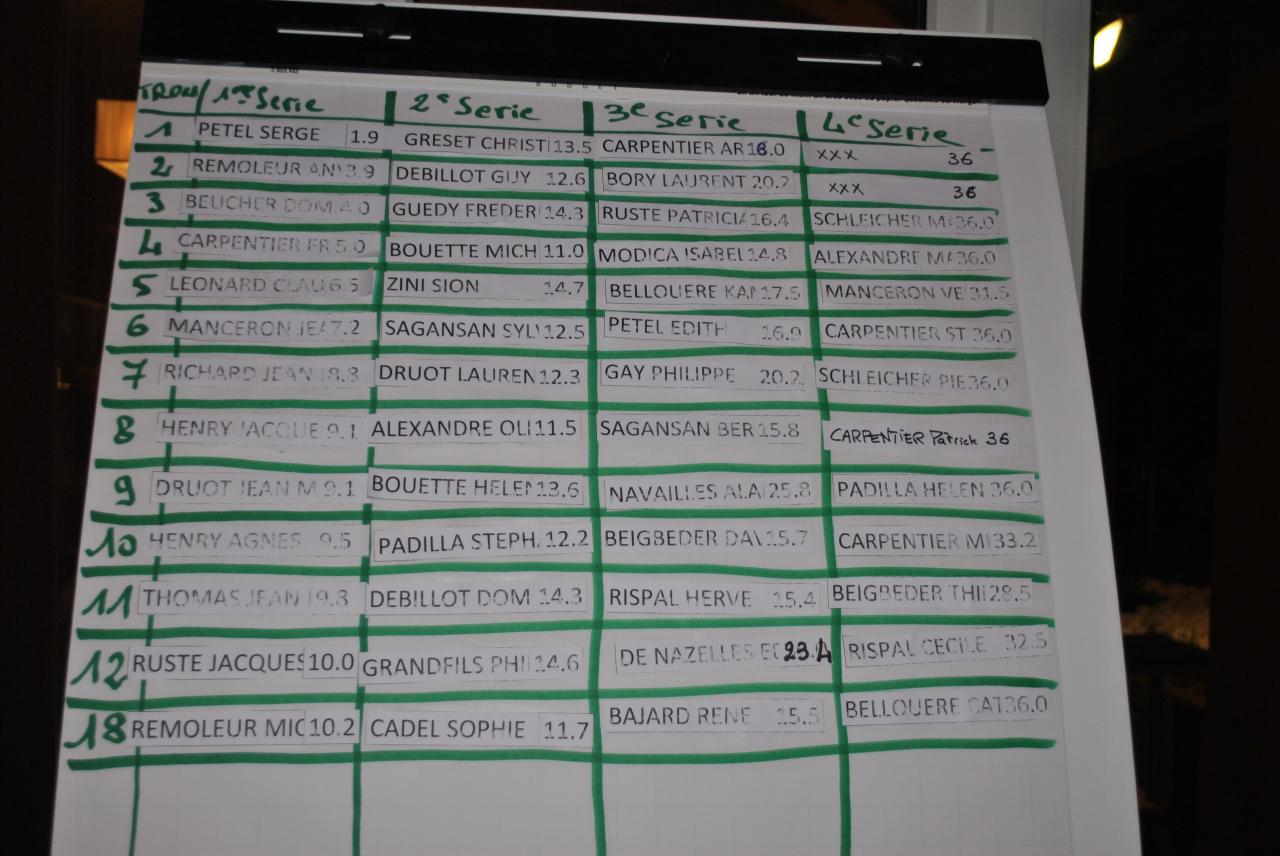 TROU / 1ère Serie 2e Serie 3e Serie 4e Serie
1 PETEL SERGE 1.9 GRESET CHRIST 13.5 CARPENTIER AR 18.0 xxx 36
2 REMOLEUR AN 3.9 DEBILLOT GUY 12.6 BORY LAURENT 20.2 xxx 36
3 BEUCHER DOM 4.0 GUEDY FREDER 14.3 RUSTE PATRICIA 16.4 SCHLEICHER MA 36.0
4 CARPENTIER FR 5.0 BOUETTE MICH 11.0 MODICA ISABEL 14.8 ALEXANDRE MA 36.0
5 LEONARD CLAU 6.5 ZINI SION 14.7 BELLOUERE KAR 17.5 MANCERON VE 31.5
6 MANCERON JEA 7.2 SAGANSAN SYLV 12.5 PETEL EDITH 16.9 CARPENTIER ST 36.0
7 RICHARD JEAN 8.8 DRUOT LAUREN 12.3 GAY PHILIPPE 20.2 SCHLEICHER PIE 36.0
8 HENRY JACQUE 9.1 ALEXANDRE OLI 11.5 SAGANSAN BER 15.8 CARPENTIER Patrick 36
9 DRUOT JEAN M 9.1 BOUETTE HELEN 13.6 NAVAILLES ALAI 25.8 PADILLA HELEN 36.0
10 HENRY AGNES 9.5 PADILLA STEPH 12.2 BEIGBEDER DAV 15.7 CARPENTIER MI 33.2
11 THOMAS JEAN 9.8 DEBILLOT DOM 14.3 RISPAL HERVE 15.4 BEIGBEDER THI 28.5
12 RUSTE JACQUES 10.0 GRANDFILS PHI 14.6 DE NAZELLES ED 23.4 RISPAL CECILE 32.5
18 REMOLEUR MIC 10.2 CADEL SOPHIE 11.7 BAJARD RENE 15.5 BELLOUERE CAT 36.0